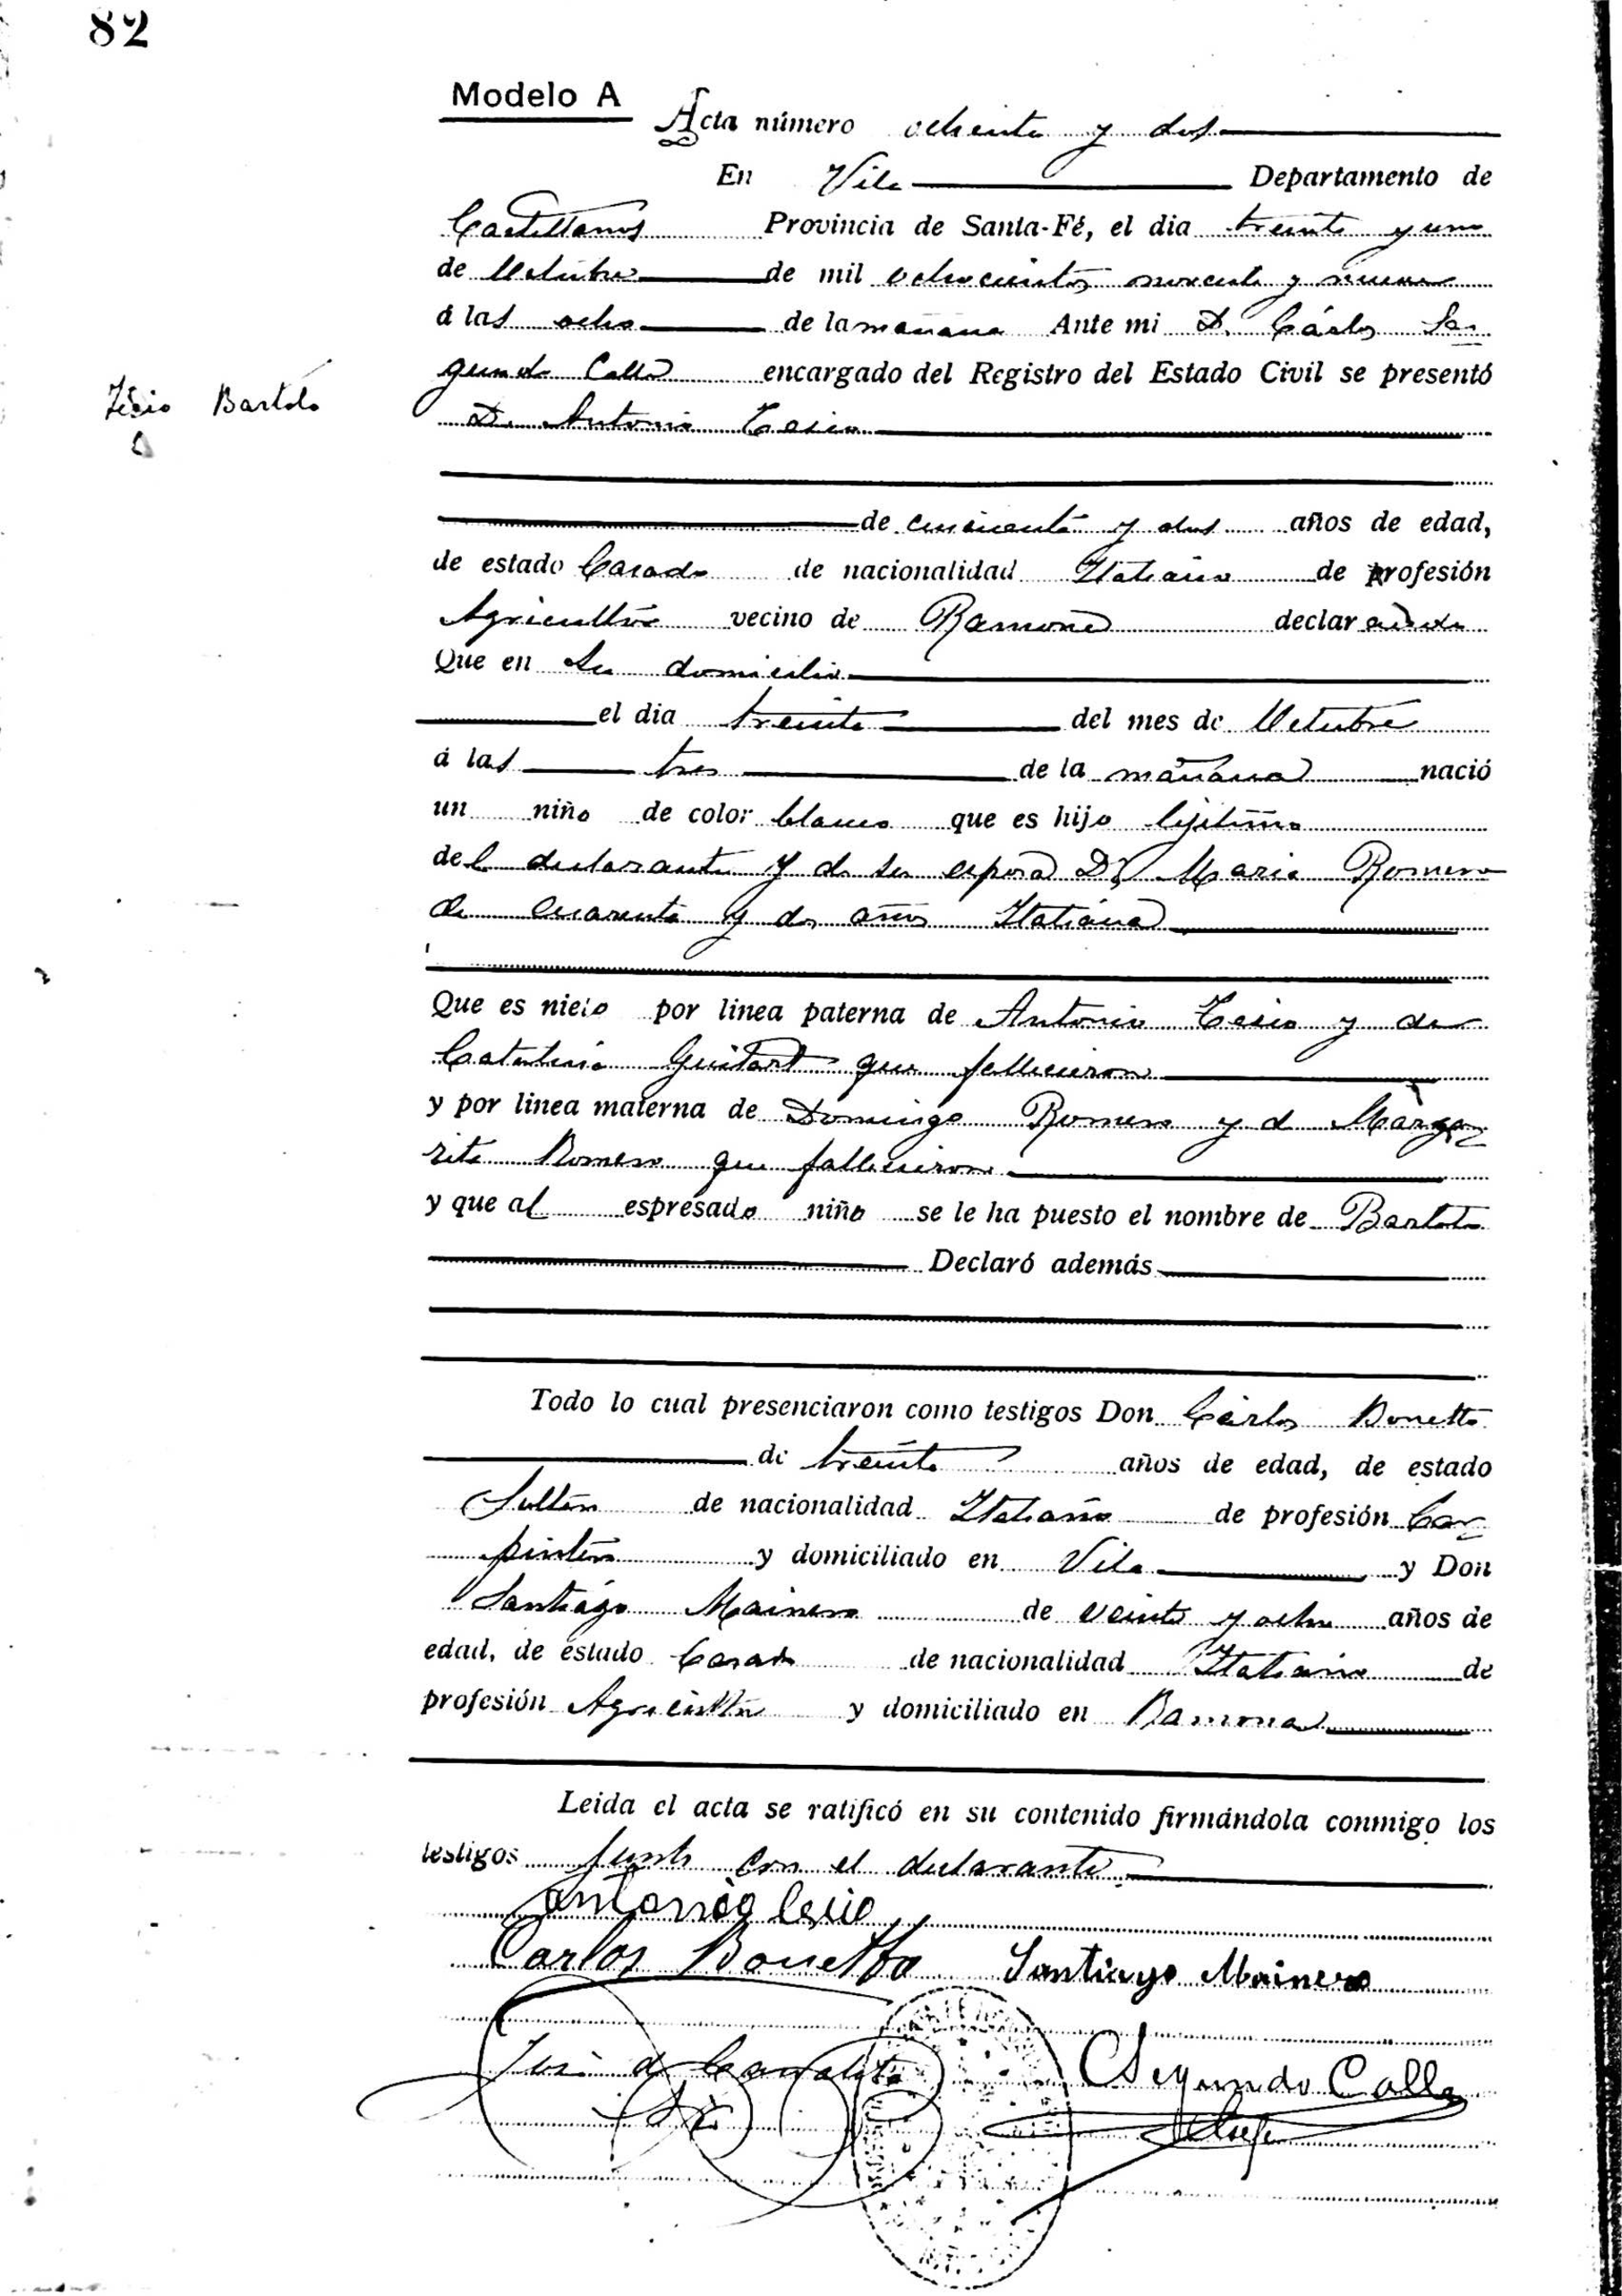 82
Modelo A
Acta número ochenta y dos
En Vila Departamento de
Castellanos Provincia de Santa-Fé, el dia treinta y uno
de Octubre de mil ochocientos noventa y nueve
á las ocho de la mañana Ante mi D. Cárlos Se
gundo Calla encargado del Registro del Estado Civil se presentó
Tesio Bartolo
D. Antonio Tesio
de cincuenta y dos años de edad,
de estado Casado de nacionalidad Italiano de profesión
Agricultor vecino de Ramona declarando
Que en su domicilio
el dia treinta del mes de Octubre
á las tres de la mañana nació
un niño de color blanco que es hijo lejitimo
del declarante y de su esposa Da. Maria Romero
de cuarenta y dos años Italiana
Que es nieto por linea paterna de Antonio Tesio y de
Catalina Guitart que fallecieron
y por linea materna de Domingo Romero y d Marga
rita Romero que fallecieron
y que al espresado niño se le ha puesto el nombre de Bartolo
Declaró además
Todo lo cual presenciaron como testigos Don Cárlos Bonetto
de treinta años de edad, de estado
Soltero de nacionalidad Italiano de profesión Car
pintero y domiciliado en Vila y Don
Santiago Mainero de veinte y ocho años de
edad, de estado Casado de nacionalidad Italiano de
profesión Agricultor y domiciliado en Ramona
Leida el acta se ratificó en su contenido firmándola conmigo los
testigos junto con el declarante
Antonio Tesio
Carlos Bonetto Santiago Mainero
C Segundo Calla
Jefe